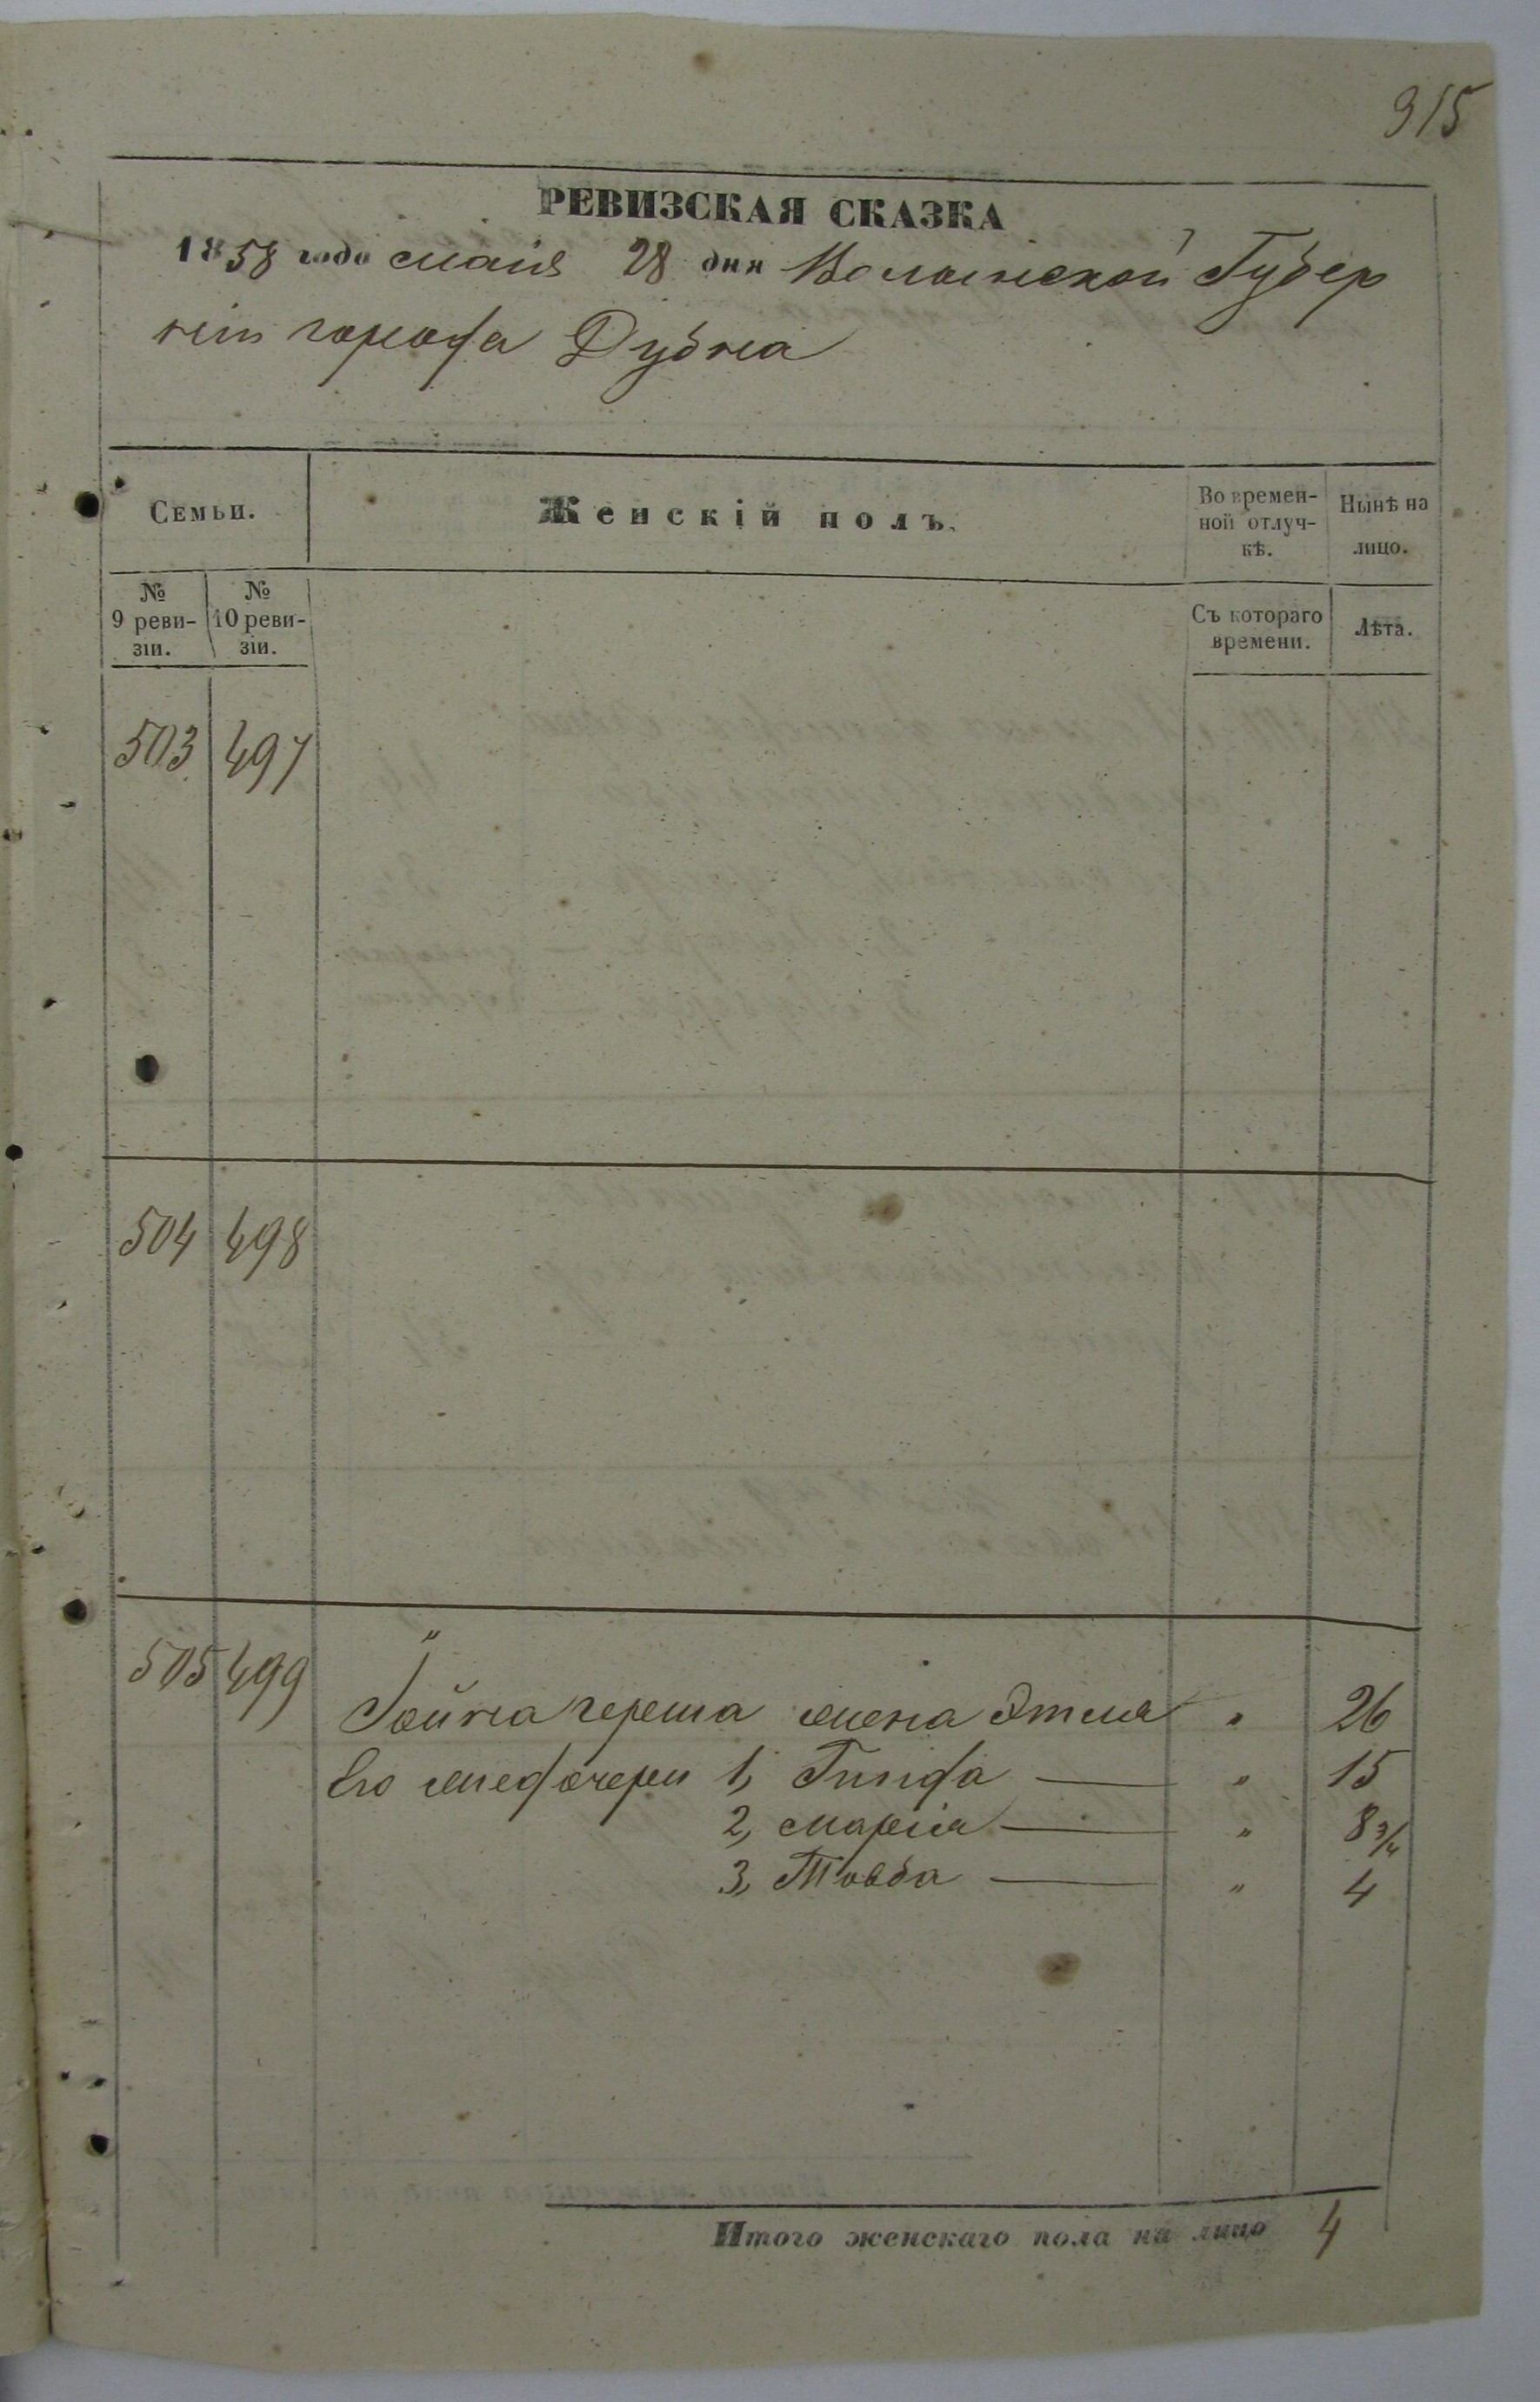 915
РЕВИЗСКАЯ СКАЗКА
1858 года маія 28 дня Волынской Губер
ніи города Дубна
Семьи.
Женскій полъ.
Во времен-
ной отлуч-
кѣ.
Нынѣ на
лицо.
№
9 реви-
зіи.
№
10 реви-
зіи.
Съ котораго
времени.
Лѣта.
503 497
504 498
505 499 "
Гойнагерша жена Этля " 26
Его же дочери 1, Гинда — " 15
2, Марія — " 8 3/4
3, Товба — " 4
Итого женскаго пола на лицо 4